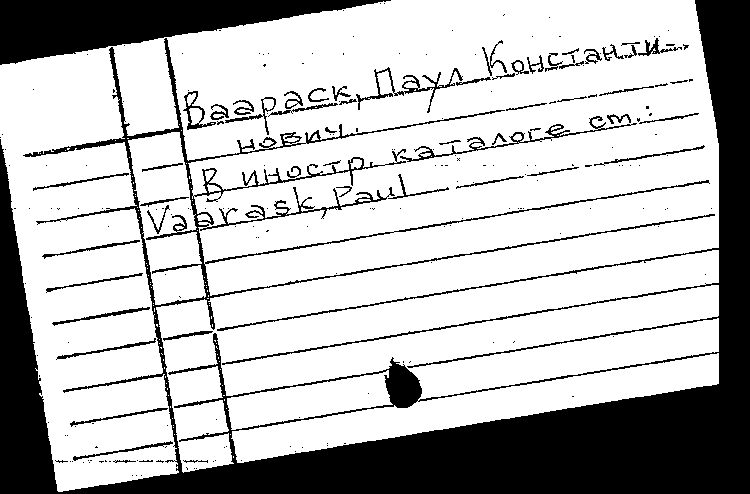 Ваараск, Паул Константи-
нович.
В иностр. каталоге ст.:
Vaarask, Paul